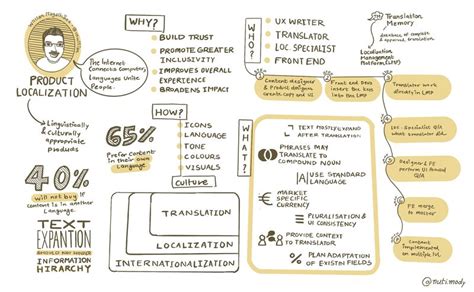 PRODUCT
LOCALIZATION
The Internet
Connects Computer,
Languages Unite
People.
Linguistically
& Culturally
appropriate
products
40%
Will not buy if
content is in another
Language.
TEXT
EXPANTION
INFORMATION
HIRARCHY
WHY?
BUILD TRUST
PROMOTE GREATER
INCLUSIVITY
IMPROVES OVERALL
EXPERIENCE
BROADENS IMPACT
HOW?
65%
Prefer content
in their own Language
ICONS
LANGUAGE
TONE
COLOURS
VISUALS
Culture
TRANSLATION
LOCALIZATION
INTERNATIONALIZATION
WHO?
UX WRITER
TRANSLATOR
LOC. SPECIALIST
FRONT END
Translation
Memory
Localization
Management
Platform (LMP)
Content designer
& Product designer
create copy and UI
Front end Devs
insert the keys
into the LMP
Translator work
directly in LMP
what translator did
FE merge
to master
Content implemented
on multiple
WHAT?
TEXT MOSTLY EXPAND
AFTER TRANSLATION
PHRASES MAY
TRANSLATE TO
COMPOUND NOUN
USE STANDARD
LANGUAGE
MARKET
SPECIFIC
CURRENCY
PLURALISATION &
UI CONSISTENCY
PROVIDE CONTEXT
TO TRANSLATOR
PLAN ADAPTATION
OF EXISTIN FIELDS